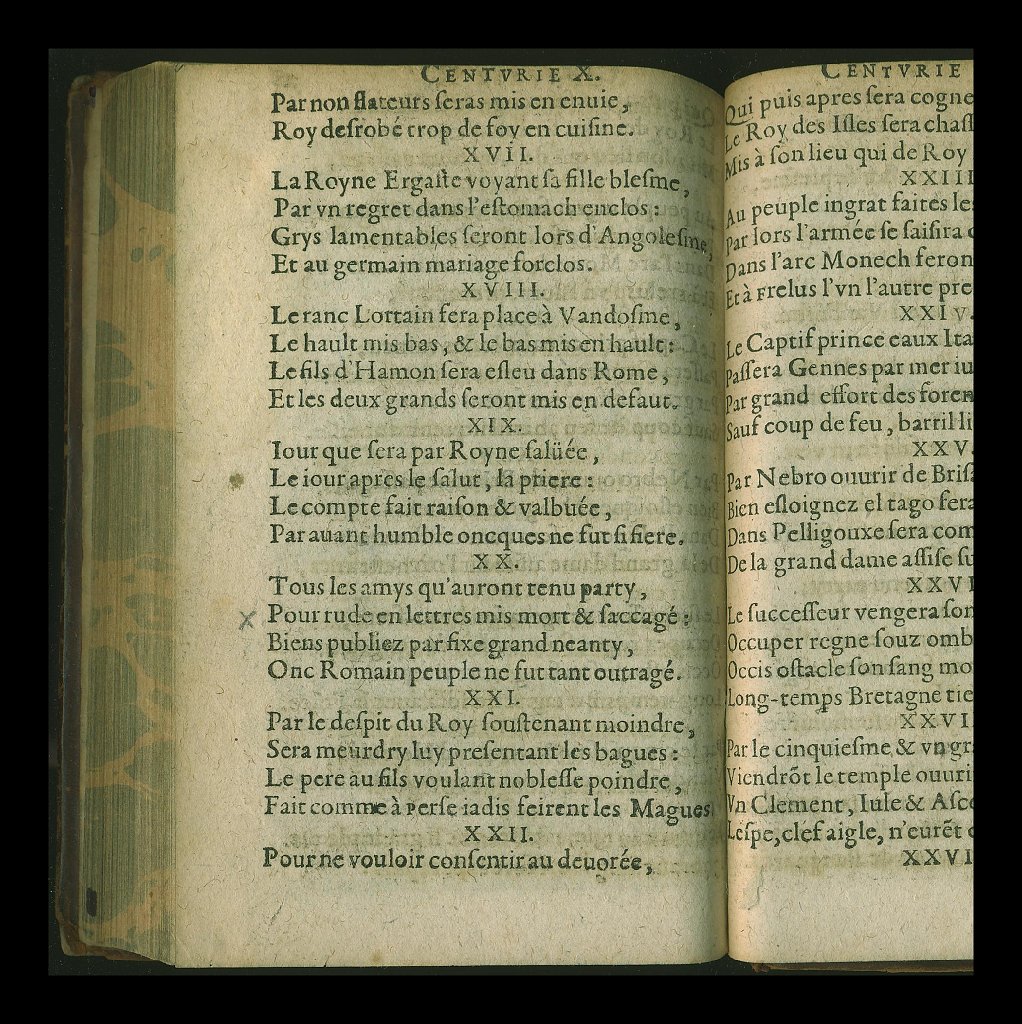 CENTVRIE X.
Par non flateurs ſeras mis en enuie,
Roy deſrobé trop de foy en cuiſine.
XVII.
La Royne Ergaſte voyant ſa fille bleſme,
Par vn regret dans l'eſtomach enclos:
Grys lamentables ſeront lors d'Angoleſme,
Et au germain mariage forclos.
XVIII.
Le ranc Lorrain fera place à Vandoſme,
Le hault mis bas, & le bas mis en hault:
Le fils d'Hamon ſera eſleu dans Rome,
Et les deux grands ſeront mis en defaut.
XIX.
Iour que ſera par Royne ſalüée,
Le iour apres le ſalut, la priere:
Le compte fait raiſon & valbuée,
Par auant humble oncques ne fut ſi fiere.
XX.
Tous les amys qu'auront tenu party,
X Pour rude en lettres mis mort & ſaccagé:
Biens publiez par fixe grand neanty,
Onc Romain peuple ne fut tant outragé.
XXI.
Par le deſpit du Roy ſouſtenant moindre,
Sera meurdry luy preſentant les bagues:
Le pere au fils voulant nobleſſe poindre,
Fait comme à Perſe iadis feirent les Magues
XXII.
Pour ne vouloir conſentir au deuorée,
CENTVRIE
Qui puis apres ſera cogne
Le Roy des Iſles ſera chaſſ
Mis à ſon lieu qui de Roy
XXIII
Au peuple ingrat faites le
Par lors l'armée ſe ſaiſira
Dans l'arc Monech feron
Et à Frelus l'vn l'autre pre
XXIV.
Le Captif prince eaux Ita
Paſſera Gennes par mer iu
Par grand effort des foren
Sauf coup de feu, barril li
XXV.
Par Nebro ouurir de Briſa
Bien eſloignez el tago fera
Dans Pelligouxe ſera com
De la grand dame aſſiſe ſu
XXVI
Le ſucceſſeur vengera ſon
Occuper regne ſouz omb
Occis oſtacle ſon ſang mo
Long-temps Bretagne tie
XXVI
Par le cinquieſme & vn gr
Viendrõt le temple ouuri
Vn Clement, Iule & Aſce
Leſpe, clef aigle, n'eurẽt
XXVI